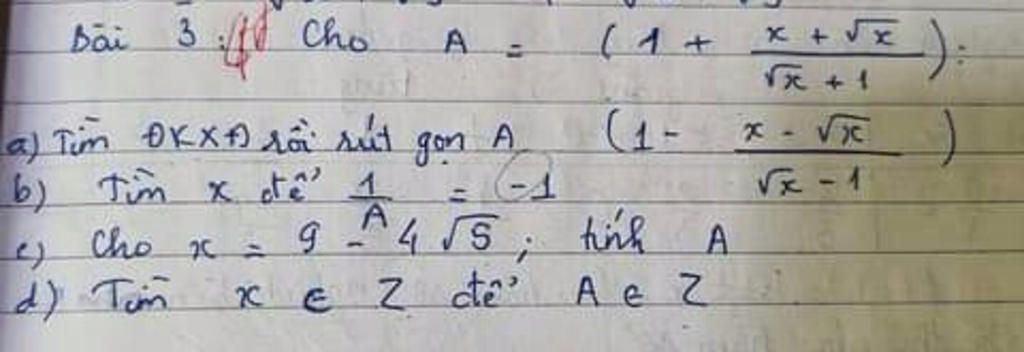 Bài 3: Cho A = (1 + \frac{x + \sqrt{x}}{\sqrt{x} + 1}) :
a) Tìm ĐKXĐ rồi rút gọn A (1 - \frac{x - \sqrt{x}}{\sqrt{x} - 1})
b) Tìm x để \frac{1}{A} = -1
c) Cho x = 9 - 4\sqrt{5}; tính A
d) Tìm x ∈ Z để A ∈ Z